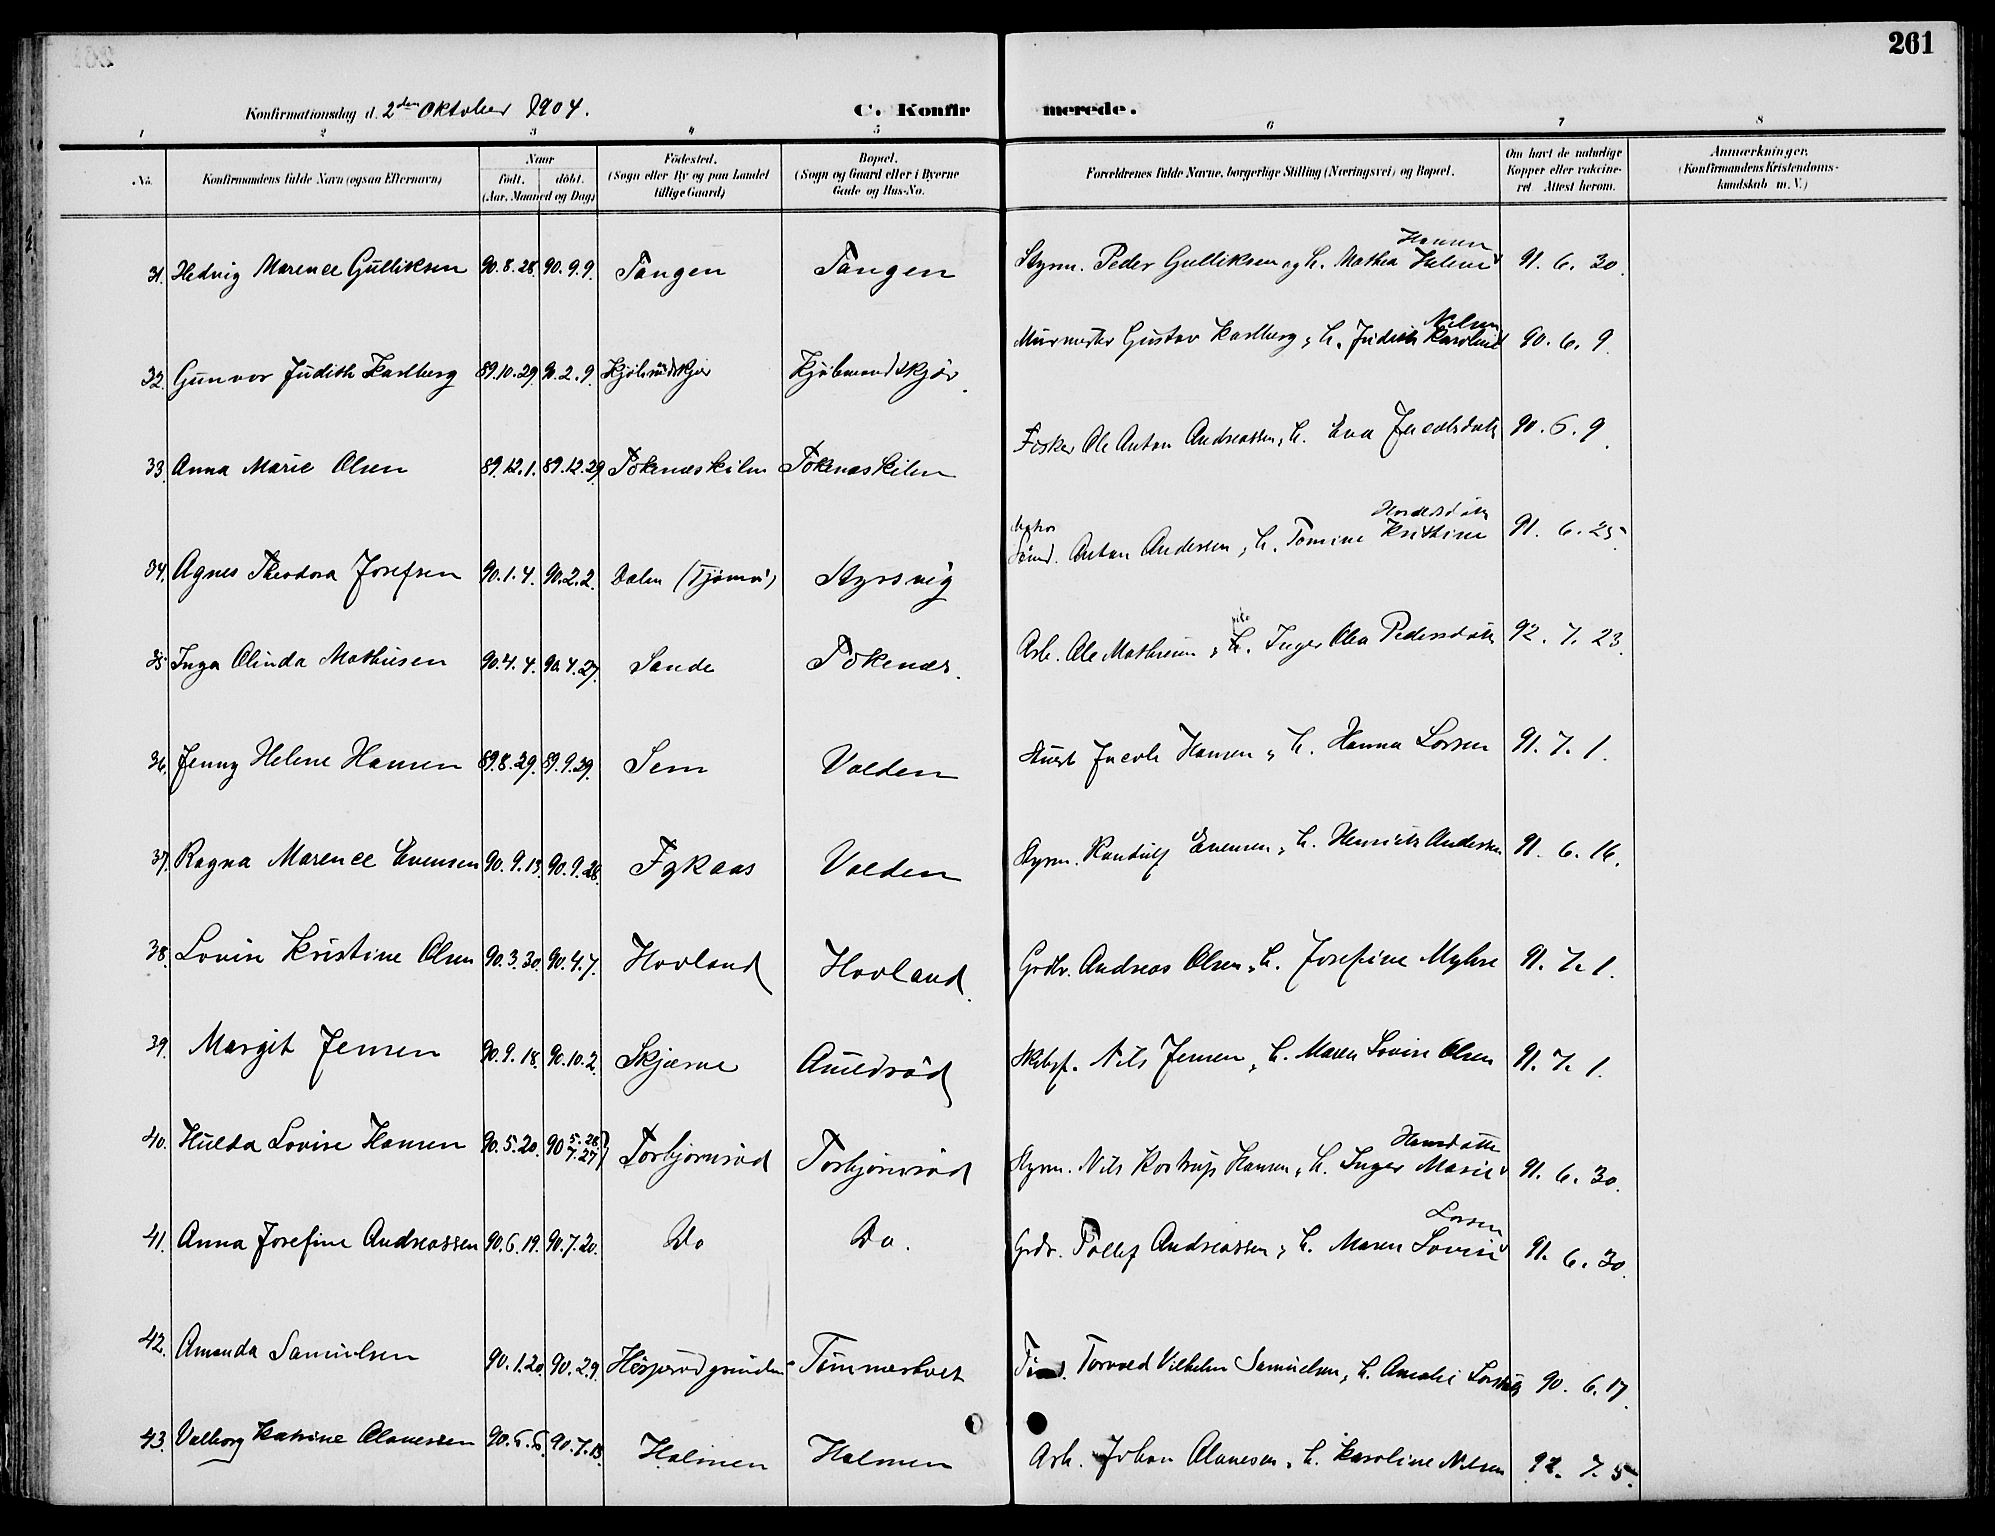 261
Konfirmationsdag d. 2den Oktober 1904. C. Konfirmerede.
1 2 3 4 5 6 7 8
No. Konfirmandens fulde Navn (ogsaa Efternavn) Naar Født. døbt. (Aar, Maaned og Dag) Fødested. (Sogn eller By og paa Landet tillige Gaard) Bopæl. (Sogn og Gaard eller i Byerne Gade og Hus-No. Forældrenes fulde Navne, borgerlige Stilling (Næringsvei) og Bopæl. Om havt de naturlige Kopper eller vaccineret Attest herom. Anmærkninger. (Konfirmandens Kristendomskundskab m. V.)
31. Hedvig Marence Gulliksen 90.8.28. 90.9.9. Tangen Tangen Styrm. Peder Gulliksen og h. Mathea Helene Hansen 91. 6. 30.
32. Gunvor Judith Karlberg 89.10.29. 90.2.9. Kjøbmandskjær Kjøbmandskjær. Murmester Gustav Karlberg, h. Judith Karoline Nilsen 90. 6. 9.
33. Anna Marie Olsen 89.12.1. 89.12.29. Tokenæskilen Tokenæskilen Fisker Ole Anton Andreassen, h. Eva Jacobsdatt 90. 6. 9.
34. Agnes Theodora Josefsen 90.1.4. 90.2.2. Dalen (Tjømø) Styrsvig Anton Andersen, h. Tomine Kristine 91. 6. 25.
35. Inga Olinda Mathisen 90.4.4. 90.4.27. Sande Tokenæs. Arb. Ole Mathisen, h. Inger Olea Pedersdatt 92. 7. 23.
36. Jenny Helene Hansen 89.8.29. 89.9.29. Sem Valden Stuert Jacob Hansen, h. Hanna Larsen 91. 7. 1.
37. Ragna Marence Evensen 90.9.13. 90.9.28. Fykaas Valden Styrm. Randulf Evensen, h. Henriette Andersen 91. 6. 16.
38. Lovise Kristine Olsen 90.3.30. 90.4.7. Hovland Hovland. Grdbr. Andreas Olsen, h. Josefine Myhre 91. 7. 1.
39. Margit Jensen 90.9.18. 90.10.2. Skjærne Auerød Skibsf. Nils Jensen, h. Maren Lovise Olsen 91. 7. 1.
40. Hulda Lovise Hansen 90.5.20. 90 5.28 7.27} Torbjørnrød Torbjønrød Styrm. Nils Kortrup Hansen, h. Inger Marie Hansdatte 91. 6. 30.
41. Anna Josefine Andreassen 90.6.19. 90.7.20. Do Do. Grdbr. Tollef Andreassen, h. Maren Lovise Larsen 91. 6. 30.
42. Amanda Samuelsen 90.1.20. 90.2.9. Tømmerholt Torvald Vilhelm Samuelsen, h. Amalie Larsdatt 90. 6. 17.
43. Valborg Katrine Olavesen 90.6.6. 90.7.13. Holmen Holmen Arb. Johan Olavesen, h. Karoline Nilsen 92. 7. 5.